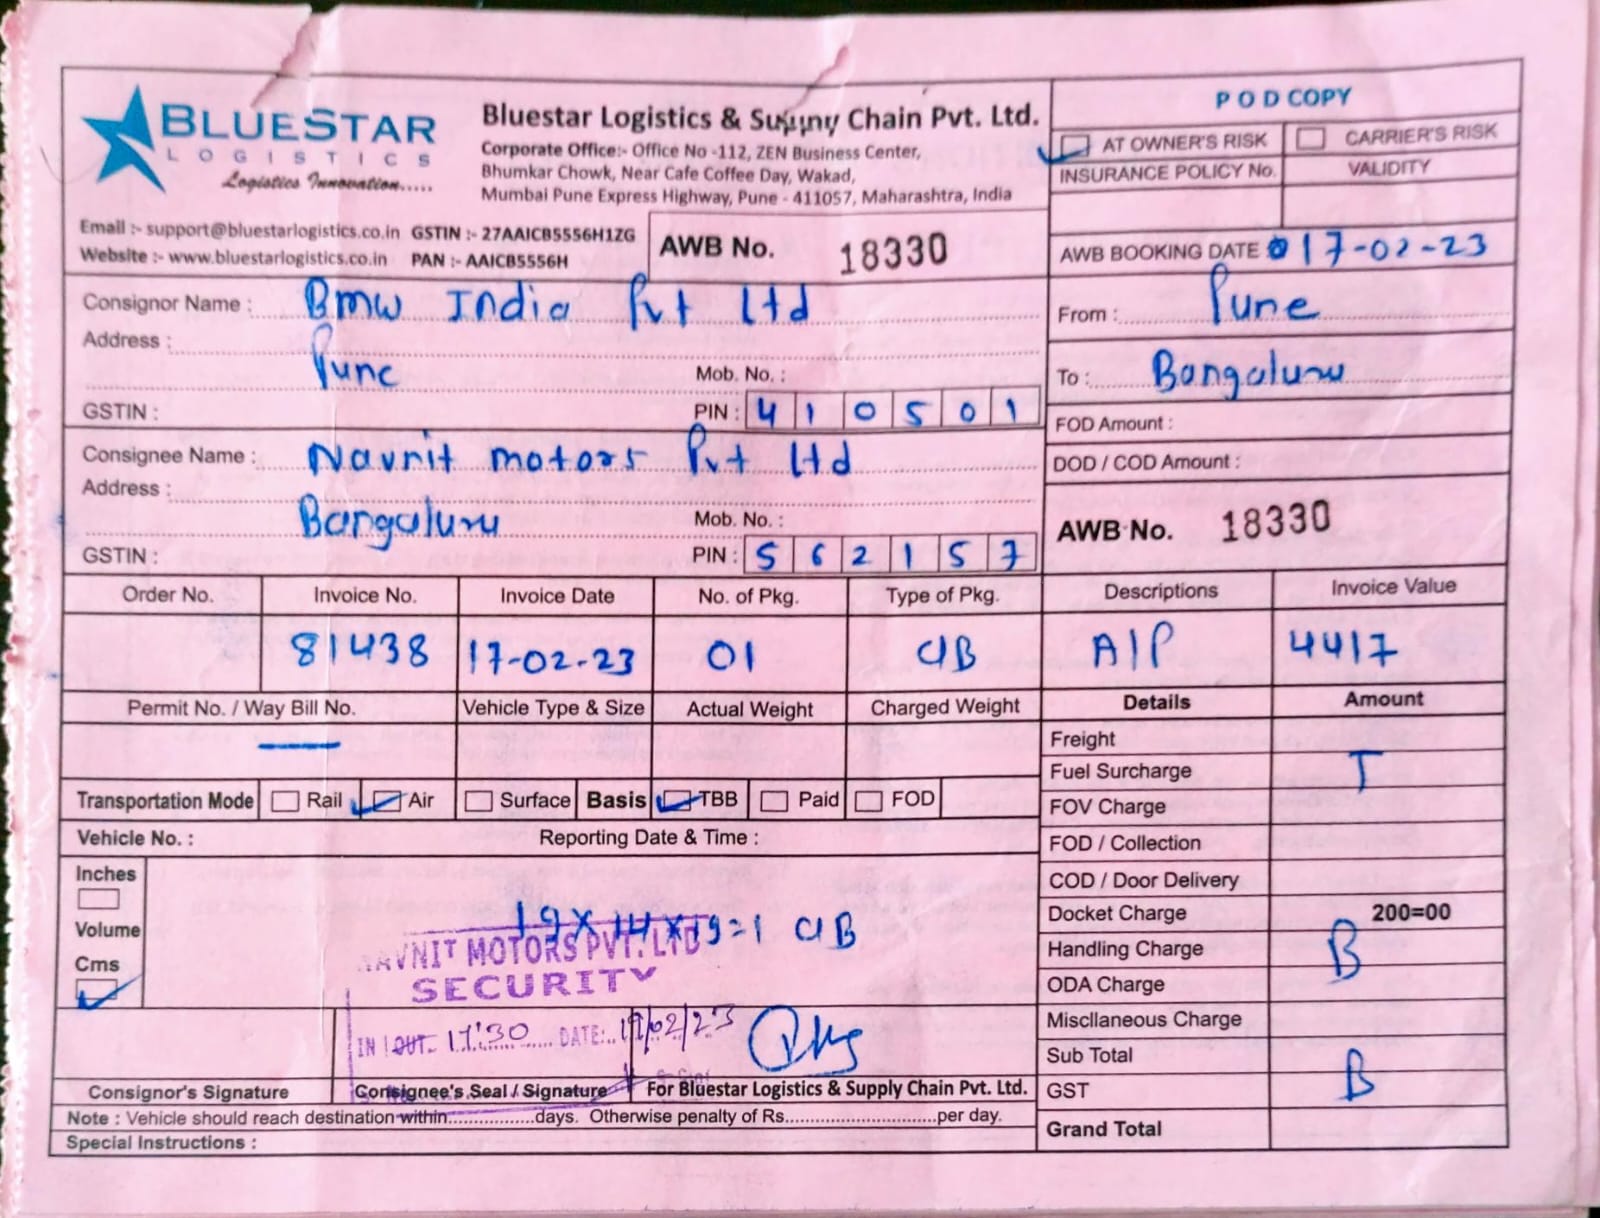 BLUESTAR
LOGISTICS
Logistics Innovation.....
Bluestar Logistics & Supply Chain Pvt. Ltd.
Corporate Office:- Office No -112, ZEN Business Center,
Bhumkar Chowk, Near Cafe Coffee Day, Wakad,
Mumbai Pune Express Highway, Pune - 411057, Maharashtra, India
Email :- support@bluestarlogistics.co.in GSTIN :- 27AAICB5556H1ZG
Website :- www.bluestarlogistics.co.in PAN :- AAICB5556H
AWB No. 18330
POD COPY
AT OWNER'S RISK CARRIER'S RISK
INSURANCE POLICY No. VALIDITY
AWB BOOKING DATE 17-02-23
Consignor Name : Bmw India Pvt Ltd
Address :
Pune
Mob. No. :
GSTIN : PIN : 410501
From : Pune
To : Bangaluru
FOD Amount :
DOD / COD Amount :
Consignee Name : Navnit motors Pvt Ltd
Address :
Bangaluru
Mob. No. :
GSTIN : PIN : 562157
AWB No. 18330
Order No. Invoice No. Invoice Date No. of Pkg. Type of Pkg. Descriptions Invoice Value
81438 17-02-23 01 CIB AIP 4417
Permit No. / Way Bill No. Vehicle Type & Size Actual Weight Charged Weight Details Amount
Transportation Mode Rail Air Surface Basis TBB Paid FOD
Vehicle No. : Reporting Date & Time :
Inches
Volume
Cms
19 x 14 x 19 = 1 CIB
NAVNIT MOTORS PVT. LTD
SECURITY
IN OUT 17:30 DATE: 19/02/23
Freight
Fuel Surcharge T
FOV Charge
FOD / Collection
COD / Door Delivery
Docket Charge 200=00
Handling Charge B
ODA Charge
Miscllaneous Charge
Sub Total
GST B
Grand Total
Consignor's Signature Consignee's Seal / Signature For Bluestar Logistics & Supply Chain Pvt. Ltd.
Note : Vehicle should reach destination within.................days. Otherwise penalty of Rs..............................per day.
Special Instructions :